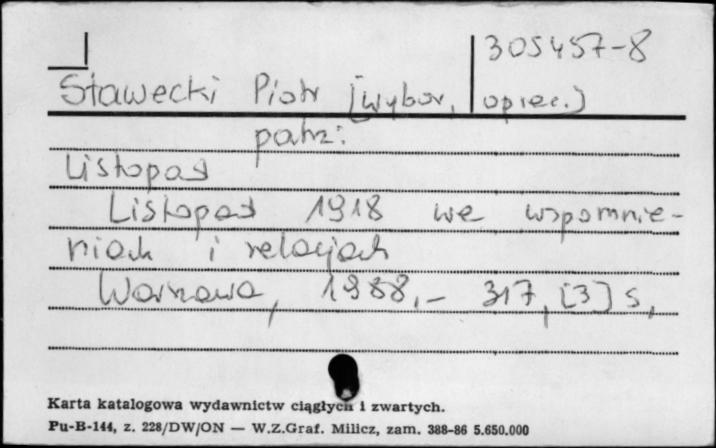 305457-8
Stawecki Piotr [wybór, oprac.)
patrz:
Listopad
Listopad 1918 we wspomnie-
niach i relacjach
Warszawa, 1988.- 317, [3] s,
Karta katalogowa wydawnictw ciągłych i zwartych.
Pu-B-144, z. 228/DW/ON — W.Z.Graf. Milicz, zam. 388-86 5.650.000